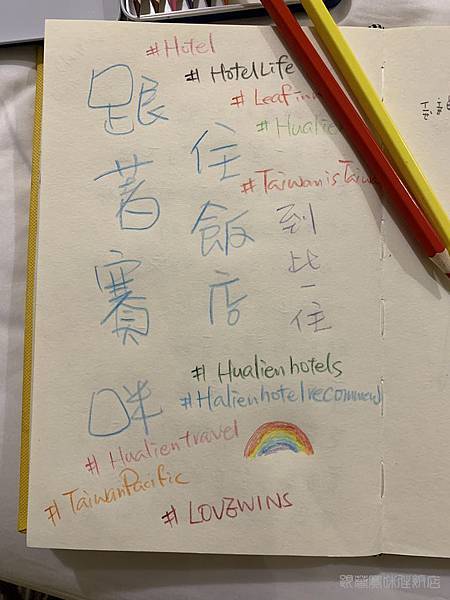 #Hotel
#HotelLife
#Leafinn
#Hualien
#TaiwanisTaiwa
跟著賽咪
住飯店
到此一住
#Hualienhotels
#Halienhotelrecommend
#Hualientravel
#TaiwanPacific
#LOVEWINS
跟著賽咪住飯店